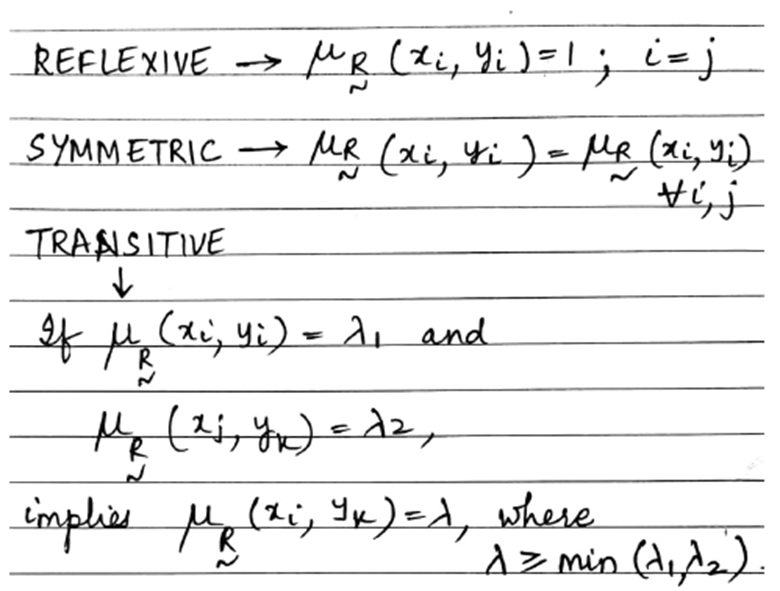 REFLEXIVE → μ_R̰ (xi, yi) = 1 ; i = j
SYMMETRIC → μ_R̰ (xi, yi) = μ_R̰ (xi, yi)
∀ i, j
TRANSITIVE
↓
If μ_R̰ (xi, yi) = λ1 and
μ_R̰ (xj, yk) = λ2,
implies μ_R̰ (xi, yk) = λ, where
λ ≥ min (λ1, λ2).